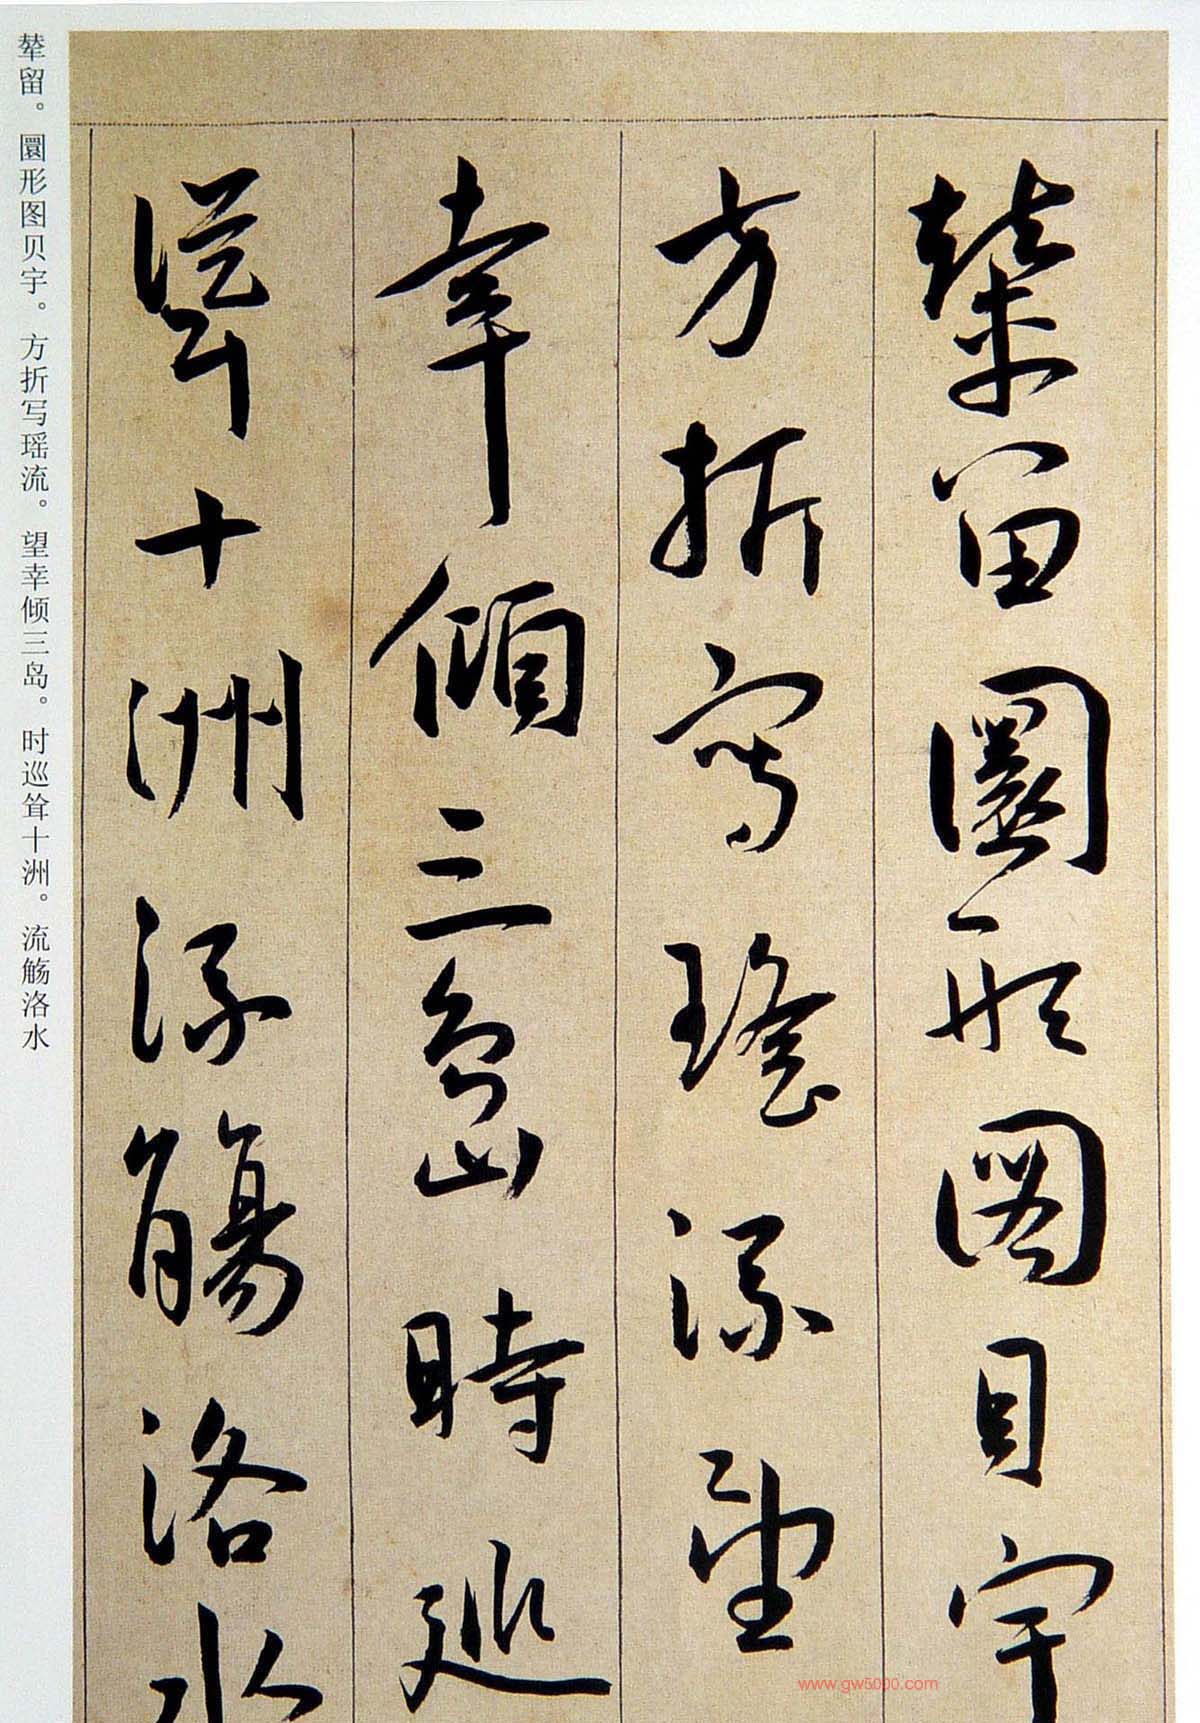 輦留圜形圖貝宇
方折寫瑤流望
幸傾三島時巡
聳十洲流觴洛水
辇留。圜形图贝宇。方折写瑶流。望幸倾三岛。时巡耸十洲。流觞洛水
www.gw5000.com